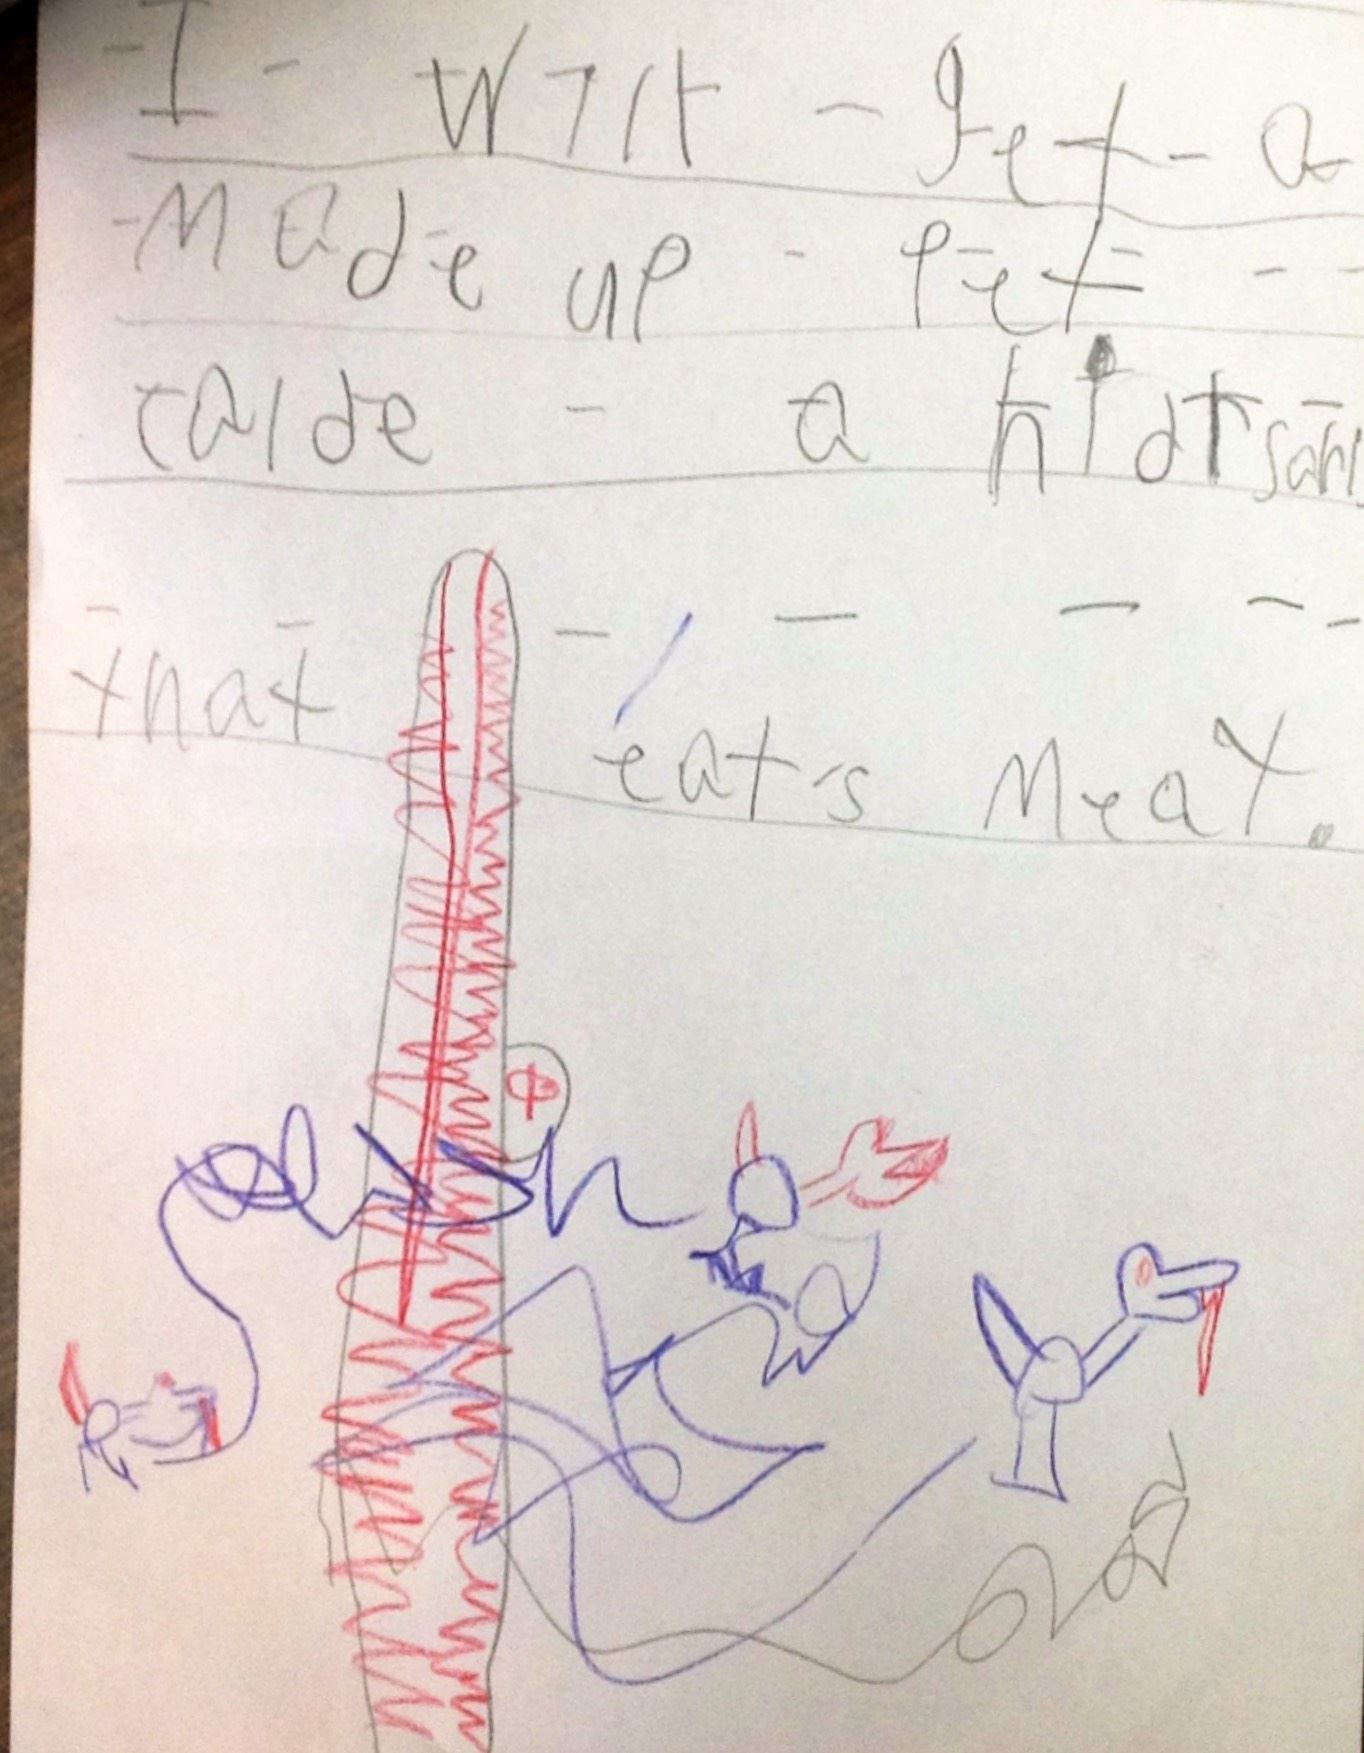 I wilt get a
Made up Pet
calde a hidtsan
that eat's Meat.